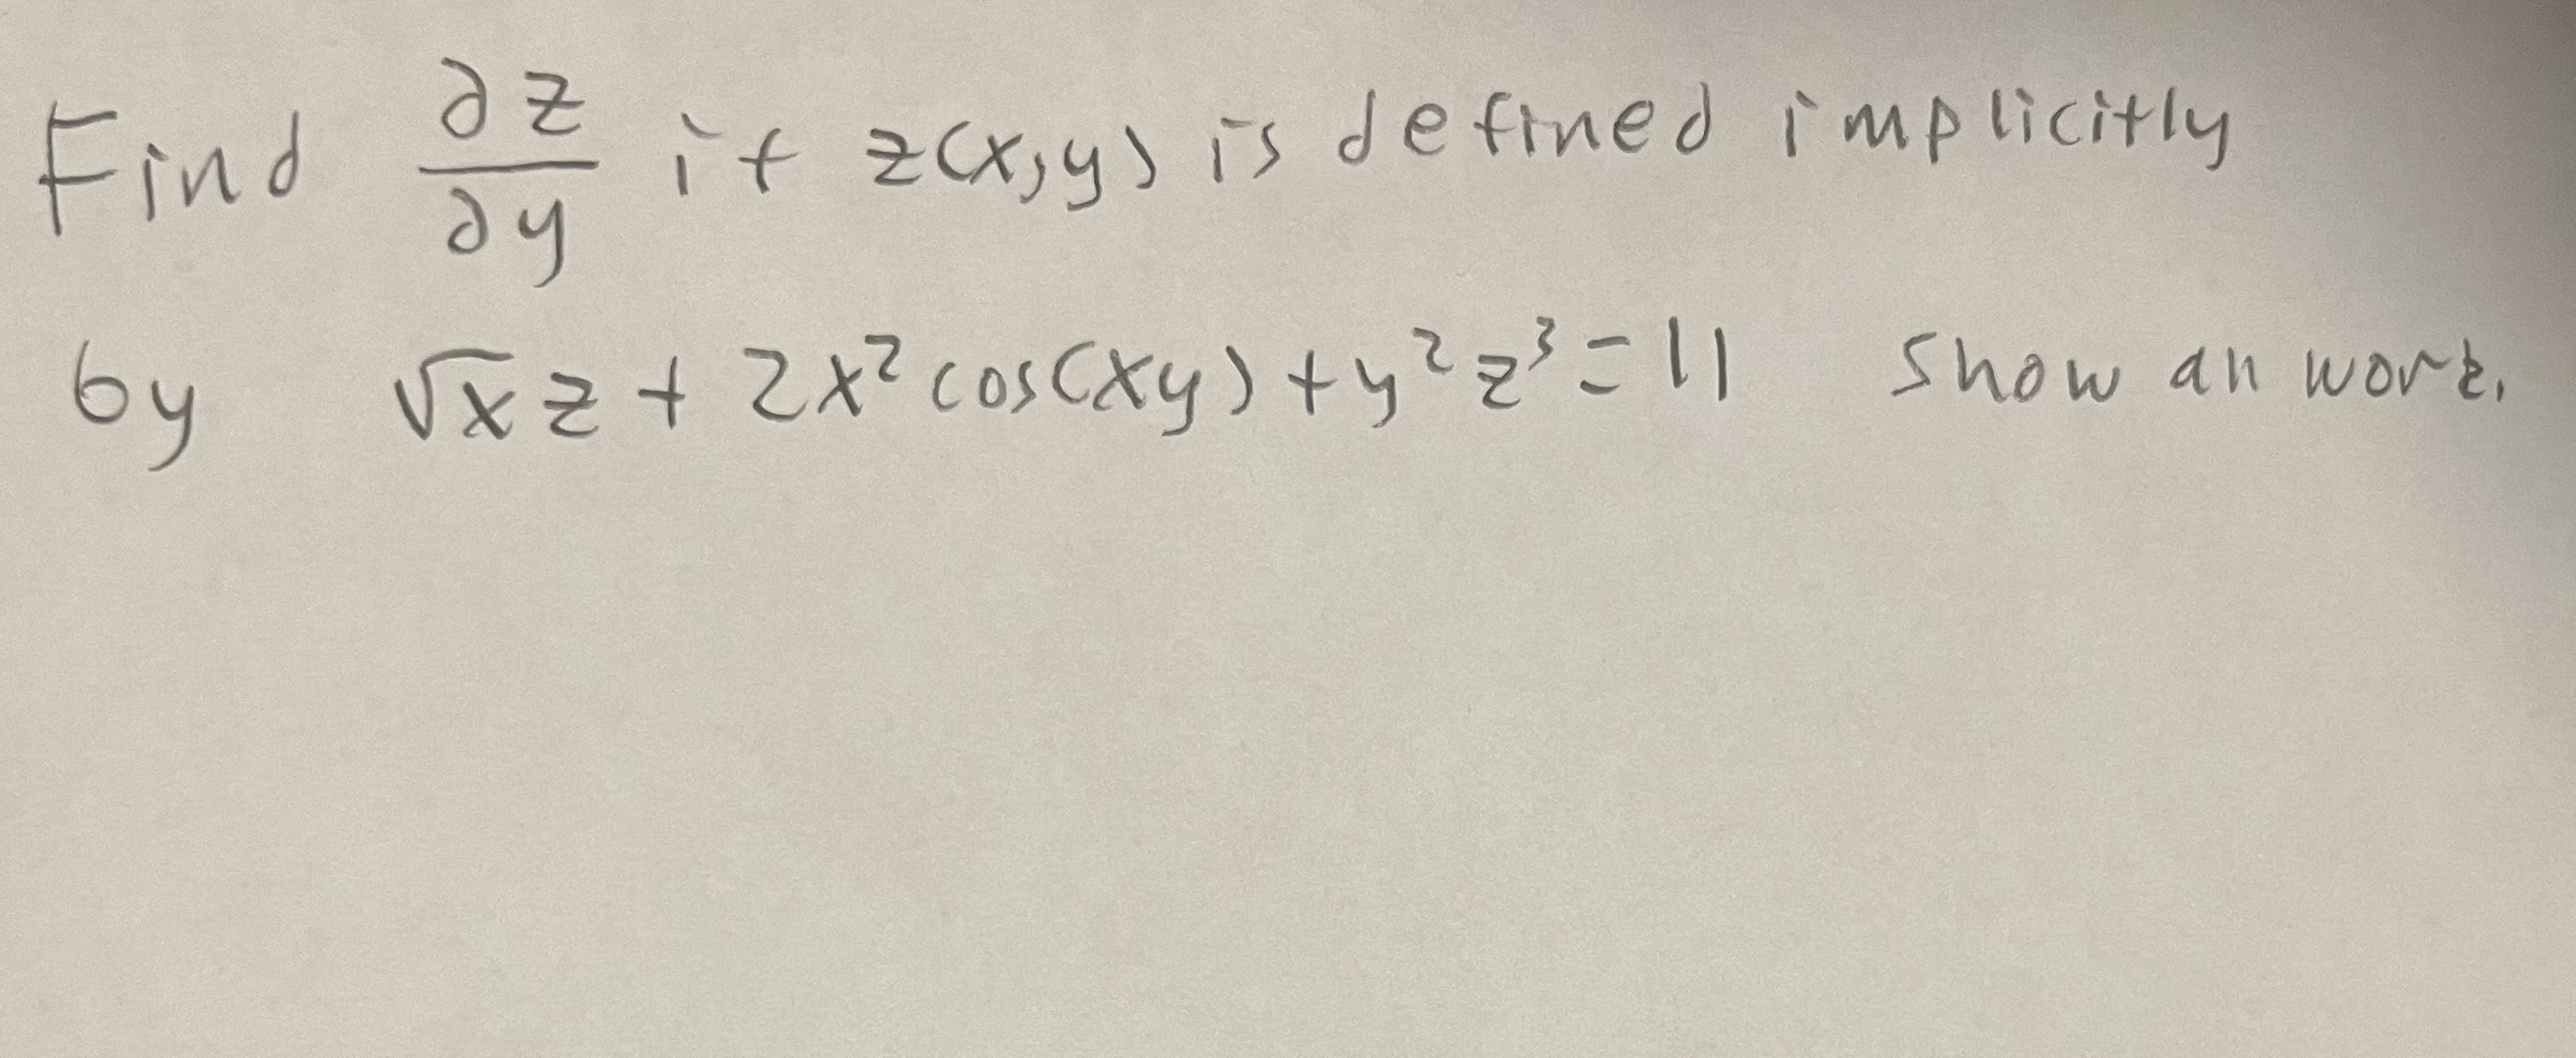 Find ∂z/∂y if z(x,y) is defined implicitly
by √x z + 2x² cos(xy) + y² z³ = 11 show all work.